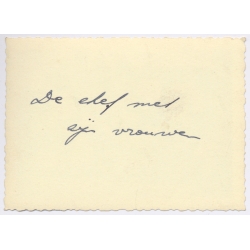 De chef met
zijn vrouwen